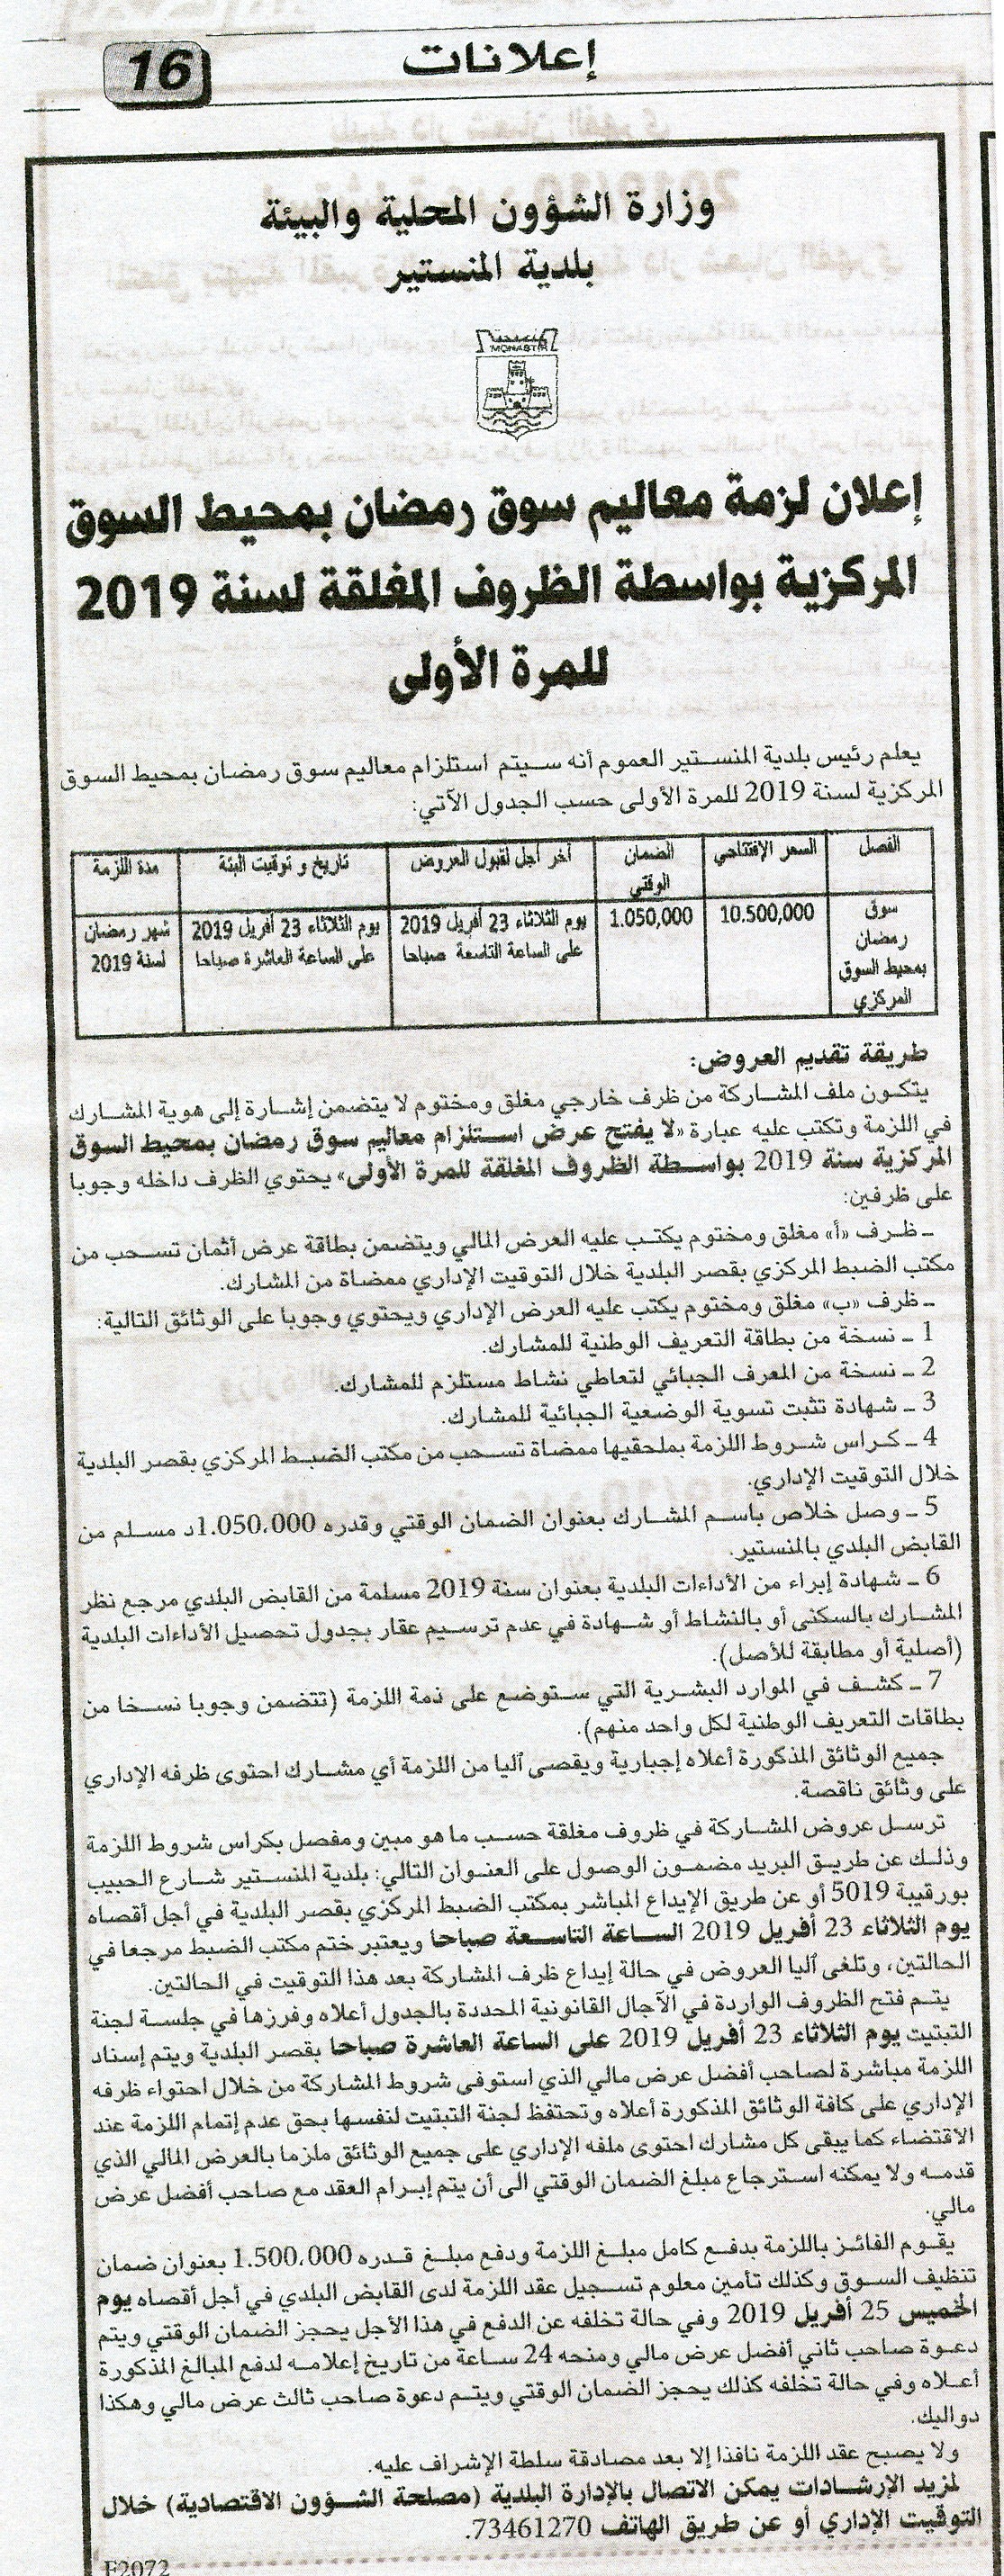 إعلانات
16
وزارة الشؤون المحلية والبيئة
بلدية المنستير
MONASTIR
إعلان لزمة معاليم سوق رمضان بمحيط السوق
المركزية بواسطة الظروف المغلقة لسنة 2019
للمرة الأولى
يعلم رئيس بلدية المنستير العموم أنه سيتم استلزام معاليم سوق رمضان بمحيط السوق
المركزية لسنة 2019 للمرة الأولى حسب الجدول الآتي:
الفصل السعر الإفتتاحي الضمان الوقتي آخر أجل لقبول العروض تاريخ و توقيت البتة مدة اللزمة
سوق رمضان بمحيط السوق المركزي 10.500,000 1.050,000 يوم الثلاثاء 23 أفريل 2019 على الساعة التاسعة صباحا يوم الثلاثاء 23 أفريل 2019 على الساعة العاشرة صباحا شهر رمضان لسنة 2019
طريقة تقديم العروض:
يتكون ملف المشاركة من ظرف خارجي مغلق ومختوم لا يتضمن إشارة إلى هوية المشارك
في اللزمة وتكتب عليه عبارة «لا يفتح عرض استلزام معاليم سوق رمضان بمحيط السوق
المركزية سنة 2019 بواسطة الظروف المغلقة للمرة الأولى» يحتوي الظرف داخله وجوبا
على ظرفين:
ـ ظرف «أ» مغلق ومختوم يكتب عليه العرض المالي ويتضمن بطاقة عرض أثمان تسحب من
مكتب الضبط المركزي بقصر البلدية خلال التوقيت الإداري ممضاة من المشارك.
ـ ظرف «ب» مغلق ومختوم يكتب عليه العرض الإداري ويحتوي وجوبا على الوثائق التالية:
1 ـ نسخة من بطاقة التعريف الوطنية للمشارك.
2 ـ نسخة من المعرف الجبائي لتعاطي نشاط مستلزم للمشارك.
3 ـ شهادة تثبت تسوية الوضعية الجبائية للمشارك.
4 ـ كراس شروط اللزمة بملحقيها ممضاة تسحب من مكتب الضبط المركزي بقصر البلدية
خلال التوقيت الإداري.
5 ـ وصل خلاص باسم المشارك بعنوان الضمان الوقتي وقدره 1.050،000د مسلم من
القابض البلدي بالمنستير.
6 ـ شهادة إبراء من الأداءات البلدية بعنوان سنة 2019 مسلمة من القابض البلدي مرجع نظر
المشارك بالسكنى أو بالنشاط أو شهادة في عدم ترسيم عقار بجدول تحصيل الأداءات البلدية
(أصلية أو مطابقة للأصل).
7 ـ كشف في الموارد البشرية التي ستوضع على ذمة اللزمة (تتضمن وجوبا نسخا من
بطاقات التعريف الوطنية لكل واحد منهم).
جميع الوثائق المذكورة أعلاه إجبارية ويقصى آليا من اللزمة أي مشارك احتوى ظرفه الإداري
على وثائق ناقصة.
ترسل عروض المشاركة في ظروف مغلقة حسب ما هو مبين ومفصل بكراس شروط اللزمة
وذلك عن طريق البريد مضمون الوصول على العنوان التالي: بلدية المنستير شارع الحبيب
بورقيبة 5019 أو عن طريق الإيداع المباشر بمكتب الضبط المركزي بقصر البلدية في أجل أقصاه
يوم الثلاثاء 23 أفريل 2019 الساعة التاسعة صباحا ويعتبر ختم مكتب الضبط مرجعا في
الحالتين، وتلغى آليا العروض في حالة إيداع ظرف المشاركة بعد هذا التوقيت في الحالتين.
يتم فتح الظروف الواردة في الآجال القانونية المحددة بالجدول أعلاه وفرزها في جلسة لجنة
التبتيت يوم الثلاثاء 23 أفريل 2019 على الساعة العاشرة صباحا بقصر البلدية ويتم إسناد
اللزمة مباشرة لصاحب أفضل عرض مالي الذي استوفى شروط المشاركة من خلال احتواء ظرفه
الإداري على كافة الوثائق المذكورة أعلاه وتحتفظ لجنة التبتيت لنفسها بحق عدم إتمام اللزمة عند
الاقتضاء كما يبقى كل مشارك احتوى ملفه الإداري على جميع الوثائق ملزما بالعرض المالي الذي
قدمه ولا يمكنه استرجاع مبلغ الضمان الوقتي الى أن يتم إبرام العقد مع صاحب أفضل عرض
مالي.
يقوم الفائز باللزمة بدفع كامل مبلغ اللزمة ودفع مبلغ قدره 1.500،000 بعنوان ضمان
تنظيف السوق وكذلك تأمين معلوم تسجيل عقد اللزمة لدى القابض البلدي في أجل أقصاه يوم
الخميس 25 أفريل 2019 وفي حالة تخلفه عن الدفع في هذا الأجل يحجز الضمان الوقتي ويتم
دعوة صاحب ثاني أفضل عرض مالي ومنحه 24 ساعة من تاريخ إعلامه لدفع المبالغ المذكورة
أعلاه وفي حالة تخلفه كذلك يحجز الضمان الوقتي ويتم دعوة صاحب ثالث عرض مالي وهكذا
دواليك.
ولا يصبح عقد اللزمة نافذا إلا بعد مصادقة سلطة الإشراف عليه.
لمزيد الإرشادات يمكن الاتصال بالإدارة البلدية (مصلحة الشؤون الاقتصادية) خلال
التوقيت الإداري أو عن طريق الهاتف 73461270.
F2072